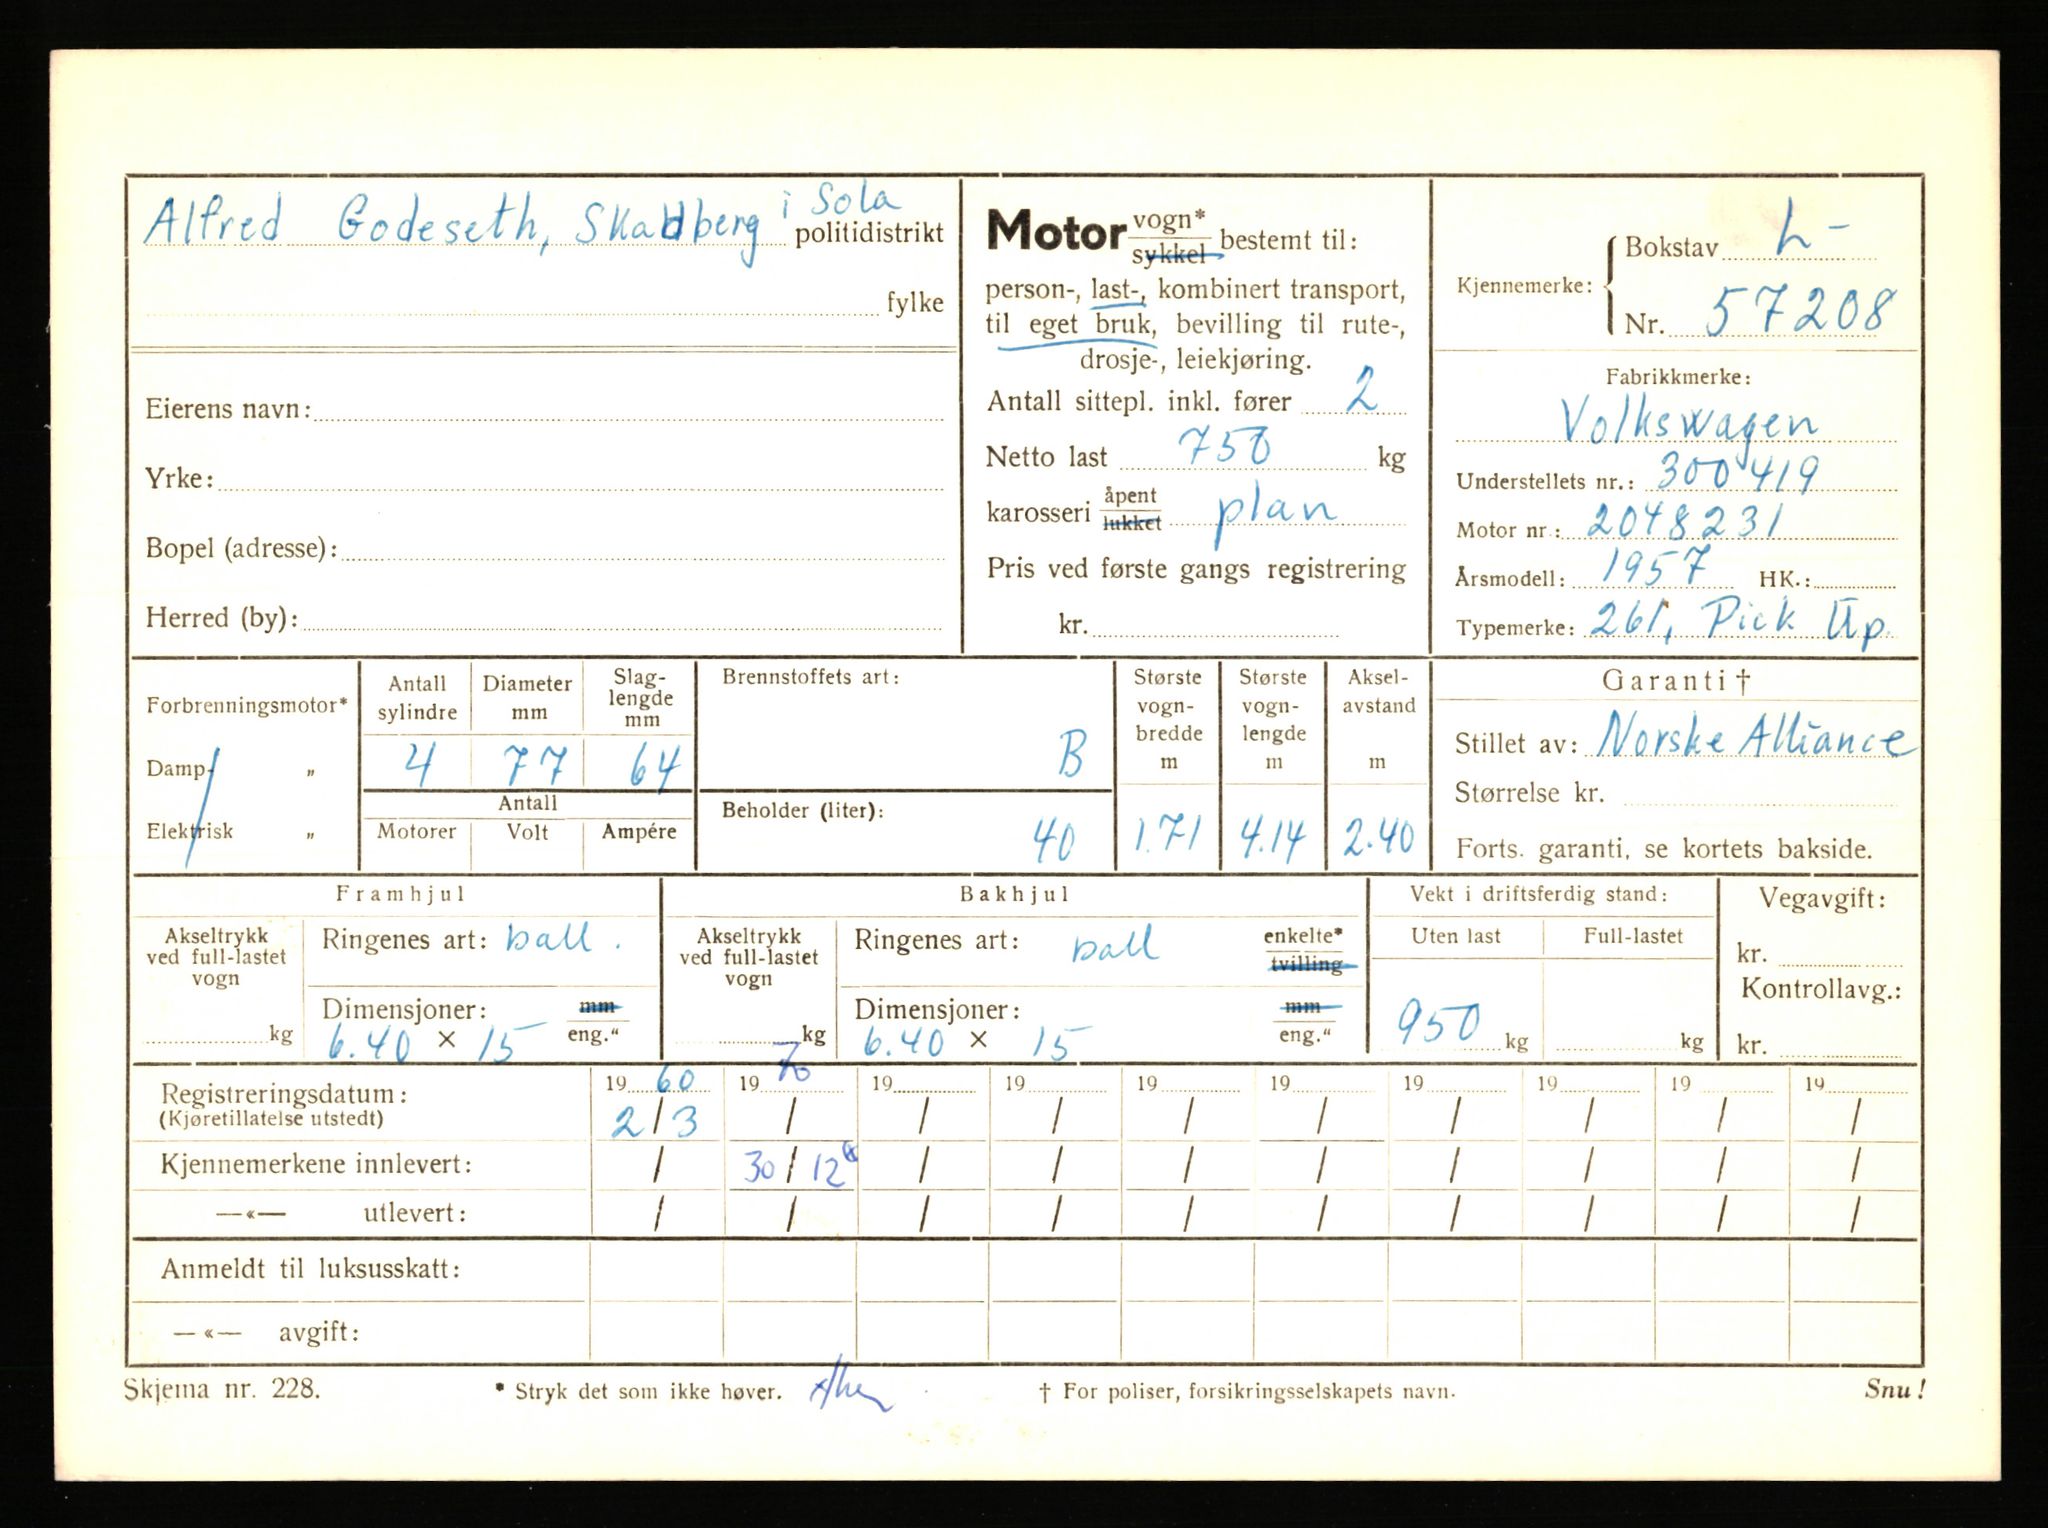 Alfred Godeseth, Skadberg i Sola politidistrikt
fylke
Eierens navn:
Yrke:
Bopel (adresse):
Herred (by):
Motor vogn* sykkel bestemt til:
person-, last-, kombinert transport,
til eget bruk, bevilling til rute-,
drosje-, leiekjøring.
Antall sittepl. inkl. fører 2
Netto last 750 kg
karosseri åpent lukket plan
Pris ved første gangs registrering
kr.
Kjennemerke: Bokstav L-
Nr. 57208
Fabrikkmerke:
Volkswagen
Understellets nr.: 300419
Motor nr.: 2048231
Årsmodell: 1957 HK.:
Typemerke: 261, Pick Up
Forbrenningsmotor*
Damp- "
Elektrisk "
Antall sylindre
4
Diameter mm
77
Slag-lengde mm
64
Antall
Motorer Volt Ampére
Brennstoffets art:
B
Beholder (liter):
40
Største vogn-bredde m
1.71
Største vogn-lengde m
4.14
Aksel-avstand m
2.40
Garanti †
Stillet av: Norske Alliance
Størrelse kr.
Forts. garanti, se kortets bakside.
Framhjul
Akseltrykk ved full-lastet vogn
kg
Ringenes art: ball.
Dimensjoner: mm
6.40 × 15 eng."
Bakhjul
Akseltrykk ved full-lastet vogn
kg
Ringenes art: ball enkelte* tvilling
Dimensjoner: mm
6.40 × 15 eng."
Vekt i driftsferdig stand:
Uten last Full-lastet
950 kg kg
Vegavgift:
kr.
Kontrollavg.:
kr.
Registreringsdatum: 19 60 19 70 19 19 19 19 19 19 19 19
(Kjøretillatelse utstedt) 2/3 / / / / / / / / /
Kjennemerkene innlevert: / 30/12 / / / / / / / /
—«— utlevert: / / / / / / / / / /
Anmeldt til luksusskatt:
—«— avgift:
Skjema nr. 228. * Stryk det som ikke høver. † For poliser, forsikringsselskapets navn. Snu!